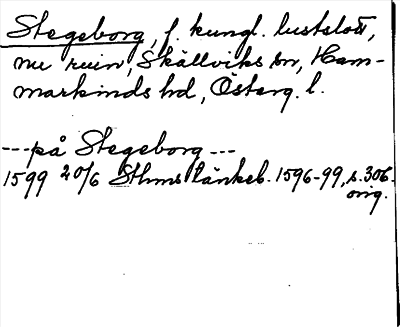 Stegeborg, f. kungl. lustslott,
nu ruin, Skällviks sn, Ham-
markinds hd, Österg. l.
---på Stegeborg---
1599 20/6 Sthms tänkeb. 1596-99, s. 306.
orig.